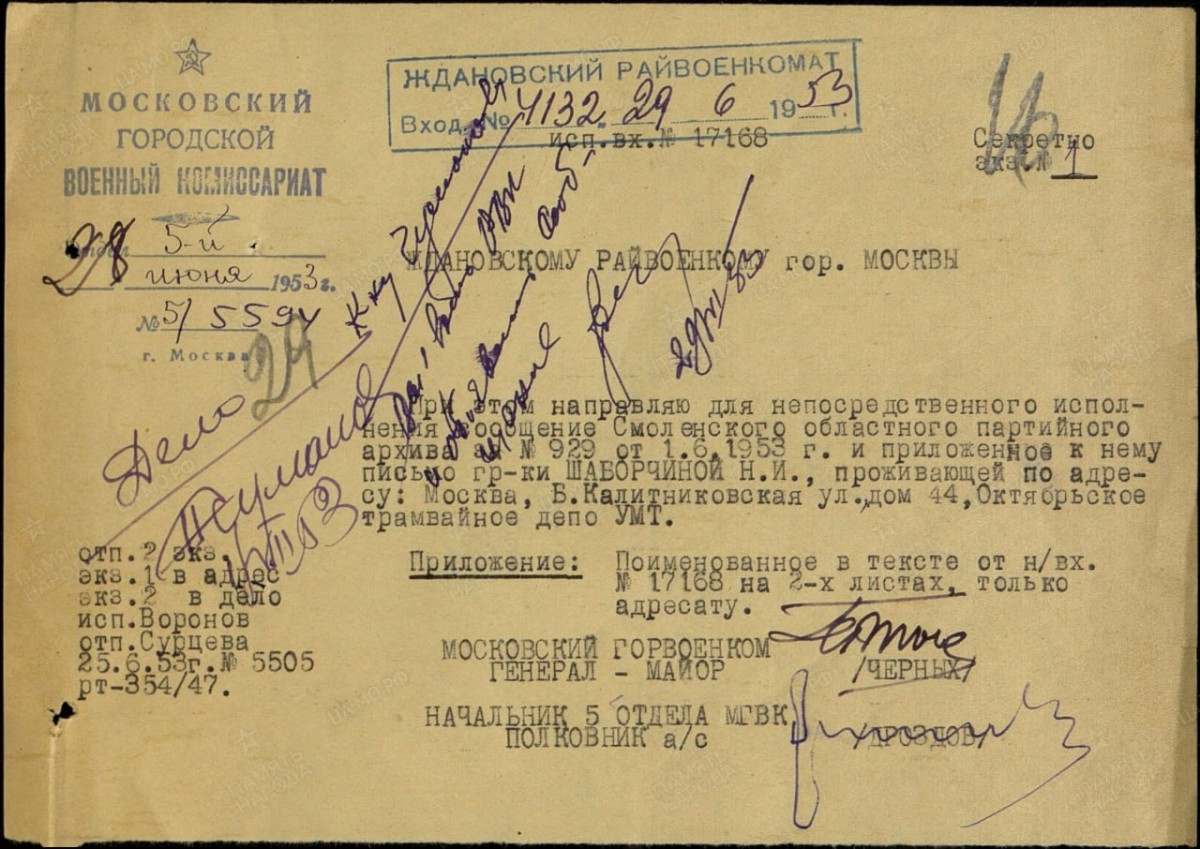 МОСКОВСКИЙ
ГОРОДСКОЙ
ВОЕННЫЙ КОМИССАРИАТ
5-й
28 июня 1953г.
№ 5/
г. Москва
ЖДАНОВСКИЙ РАЙВОЕНКОМАТ
Вход. № 4132 29 6 1953 г.
исп.вх.№ 17168
Секретно
экз.№ 1
ЖДАНОВСКОМУ РАЙВОЕНКОМУ гор. МОСКВЫ
29
Дело
При этом направляю для непосредственного испол-
нения сообщение Смоленского областного партийного
архива за № 929 от 1.6.1953 г. и приложенное к нему
письмо гр-ки ШАБОРЧИНОЙ Н.И., проживающей по адре-
су: Москва, Б.Калитниковская ул,дом 44,Октябрьское
трамвайное депо УМТ.
Приложение: Поименованное в тексте от н/вх.
№ 17168 на 2-х листах, только
адресату.
отп.2 экз.
экз.1 в адрес
экз.2 в дело
исп.Воронов
отп.Сурцева
25.6.53г.№ 5505
рт-354/47.
МОСКОВСКИЙ ГОРВОЕНКОМ
ГЕНЕРАЛ - МАЙОР /ЧЕРНЫХ/
НАЧАЛЬНИК 5 ОТДЕЛА МГВК
ПОЛКОВНИК а/с /ДРОЗДОВ/